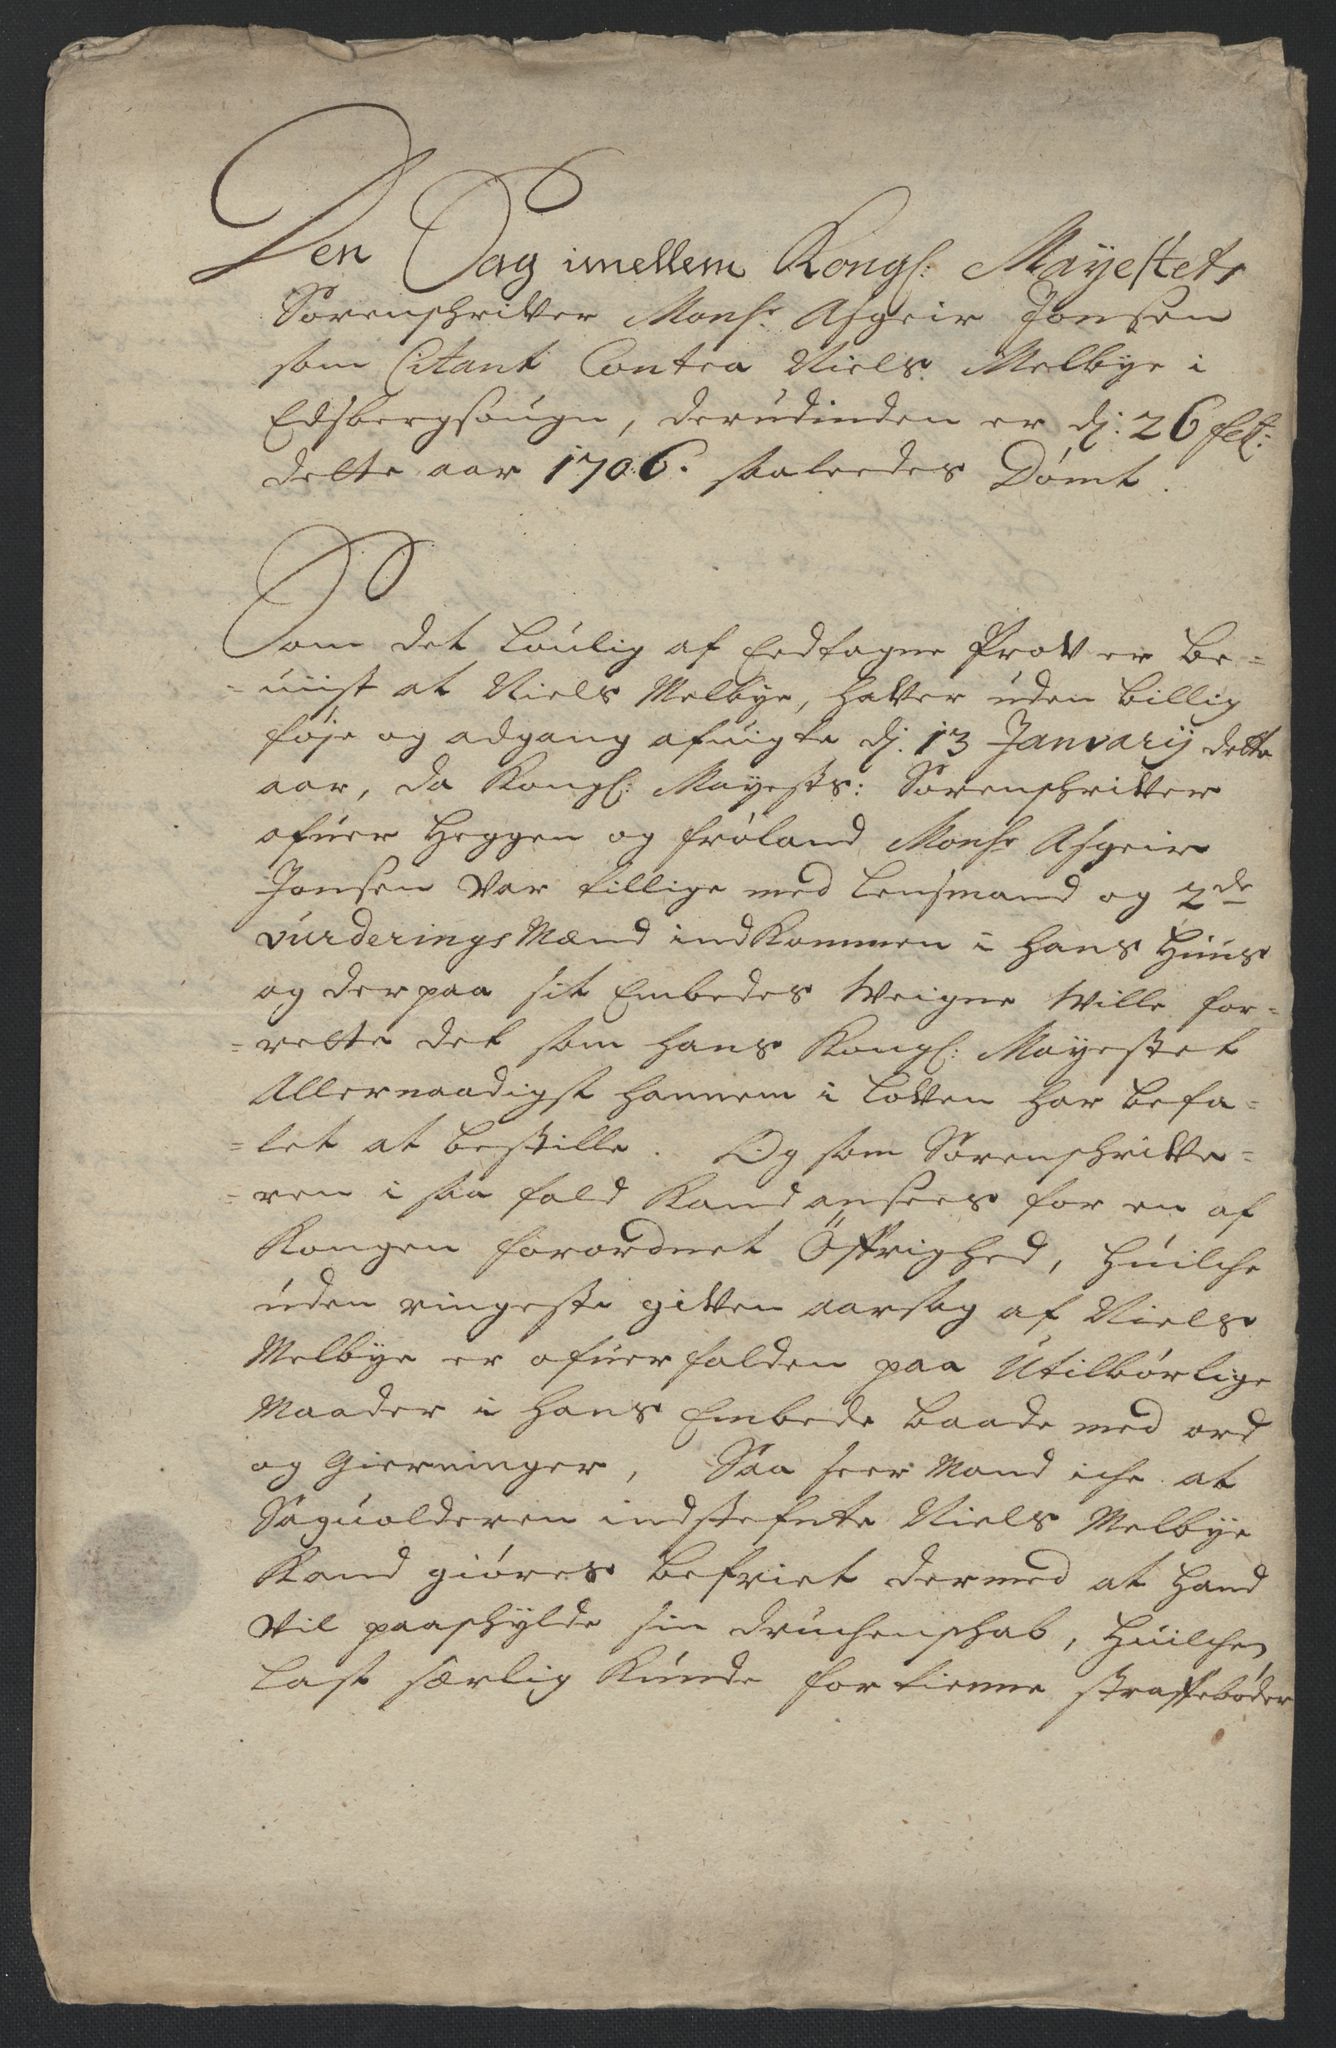 Den Sag imellem Kongl: Mayestets
Sorenschriffver Monsr Asgeir Jonsen
som Citant Contra Niels Melbye i
Edsbergsougn, derudinden er dj: 26 feb:
dette aar 1706. saaleedes Dømt.
Som det Loulig af Eedtagne Prov er be-
-uiist at Niels Melbye, haffver uden billig
føje og adgang afuigte dj. 13 Janvarij dette
aar, da Kongl: Mayests: Sorenschriffver
ofuer Heggen og Frøland Monsr Asgeir
Jonsen var tillige med Lensmand og 2de
vurderings Mænd indkommen i hans Huus
og der paa sit Embedes Weigne Wille for-
-rette det som hans Kongl: Mayestet
Allernaadigst hannem i Loffven har befa-
-let at bestille. Og som Sorenschriffve-
-ren i saa fald kand ansees for en af
Kongen forordnet Öffrighed, huilche
uden ringeste giffven aarsag af Niels
Melbye er ofuerfalden paa Utilbørlige
Maader i hans Embede baade med ord
og Gierninger, Saa seer Mand iche at
Saguolderen indstefnte Niels Melbye
Kand giøres befriet dermed at hand
vil paaschylde sin druchenschab, huilchen
Last særlig kunde fortienne straffebøder